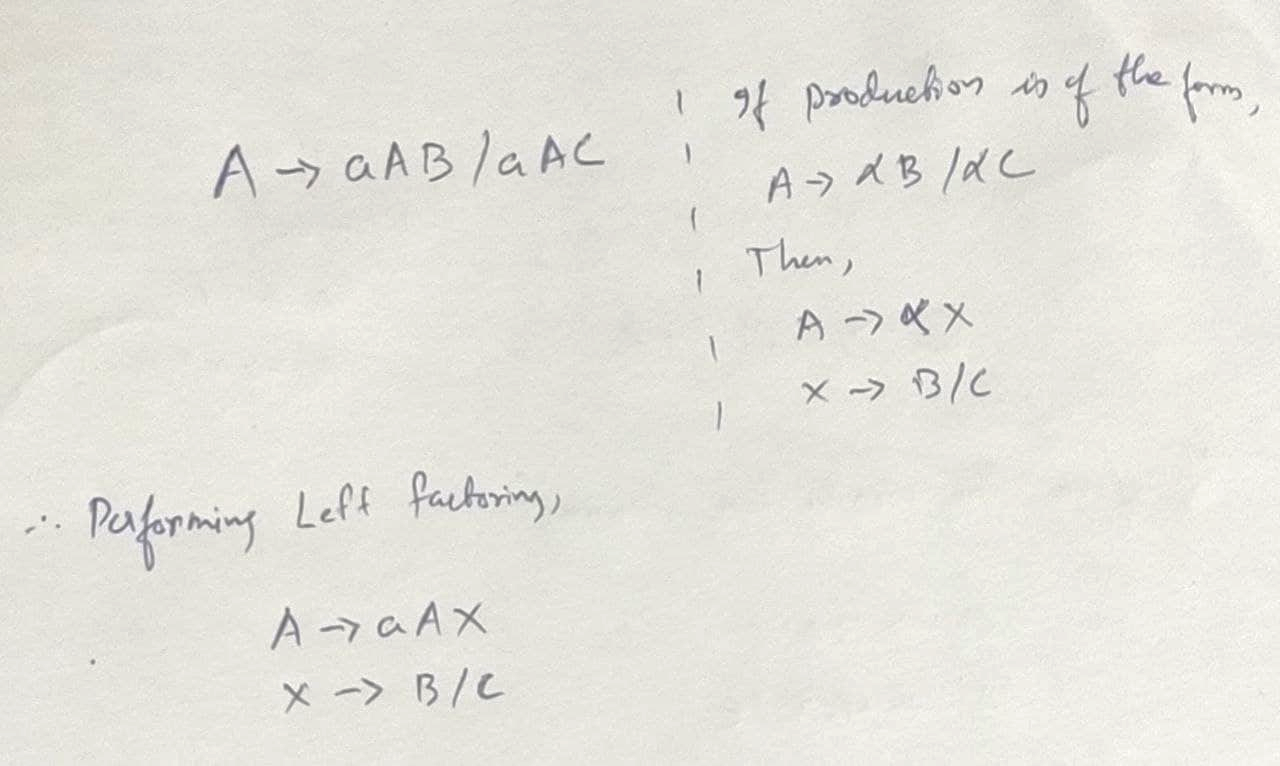 A → aAB / aAC
If production is of the form,
A → αB / αC
Then,
A → αX
X → B/C
∴ Performing Left factoring,
A → aAX
X → B/C